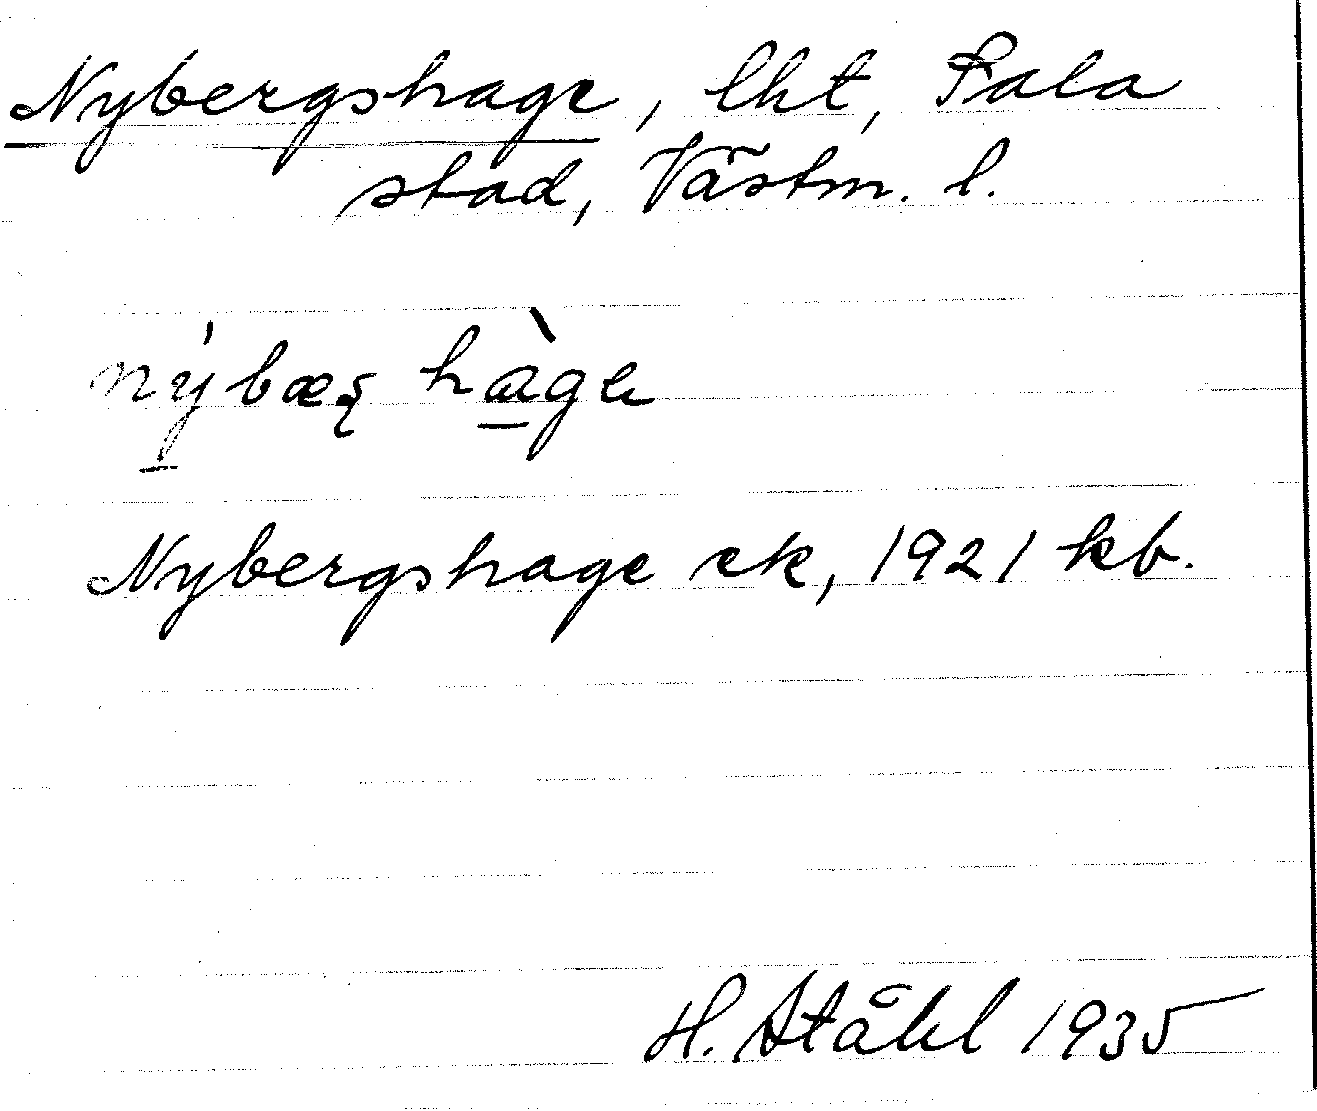 Nybergshage, lht, Sala
stad, Västm. l.
nýbæș hàgɐ
Nybergshage ek, 1921 kb.
H. Ståhl 1935